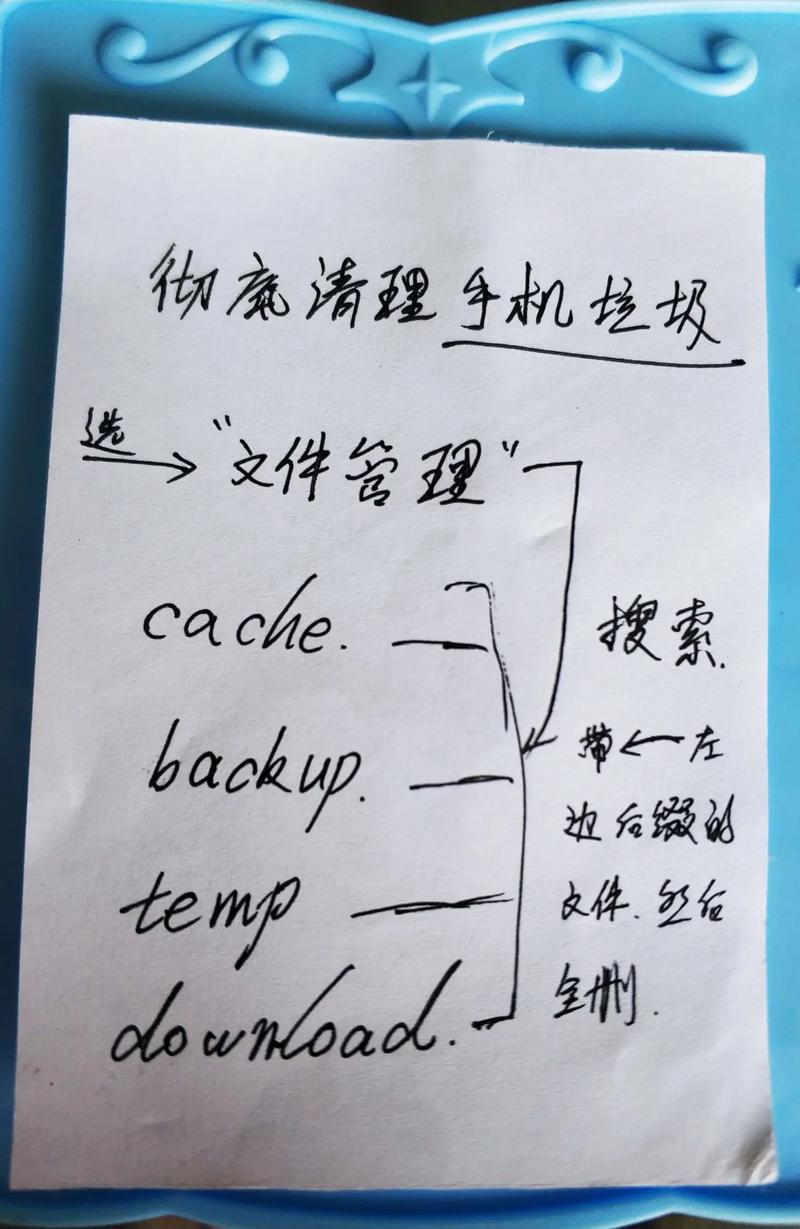 彻底清理手机垃圾
选
"文件管理"
cache.
backup.
temp
download.
搜索.
带←左
边后缀的
文件.然后
全删.